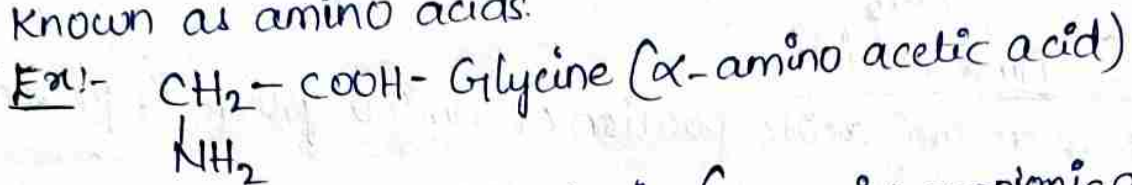 Known as amino acids.
Ex!- CH₂- COOH- Glycine (α-amino acetic acid)
NH₂